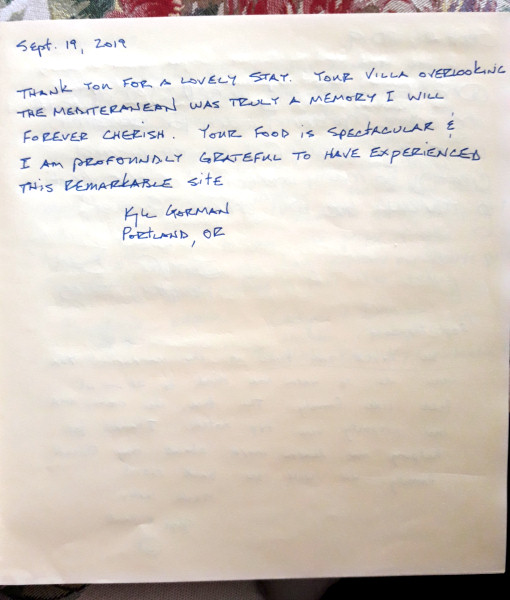 Sept. 19, 2019
THANK YOU FOR A LOVELY STAY. YOUR VILLA OVERLOOKING
THE MEDITERANEAN WAS TRULY A MEMORY I WILL
FOREVER CHERISH. YOUR FOOD IS SPECTACULAR &
I AM PROFOUNDLY GRATEFUL TO HAVE EXPERIENCED
THIS REMARKABLE SITE
Kyle GORMAN
PORTLAND, OR